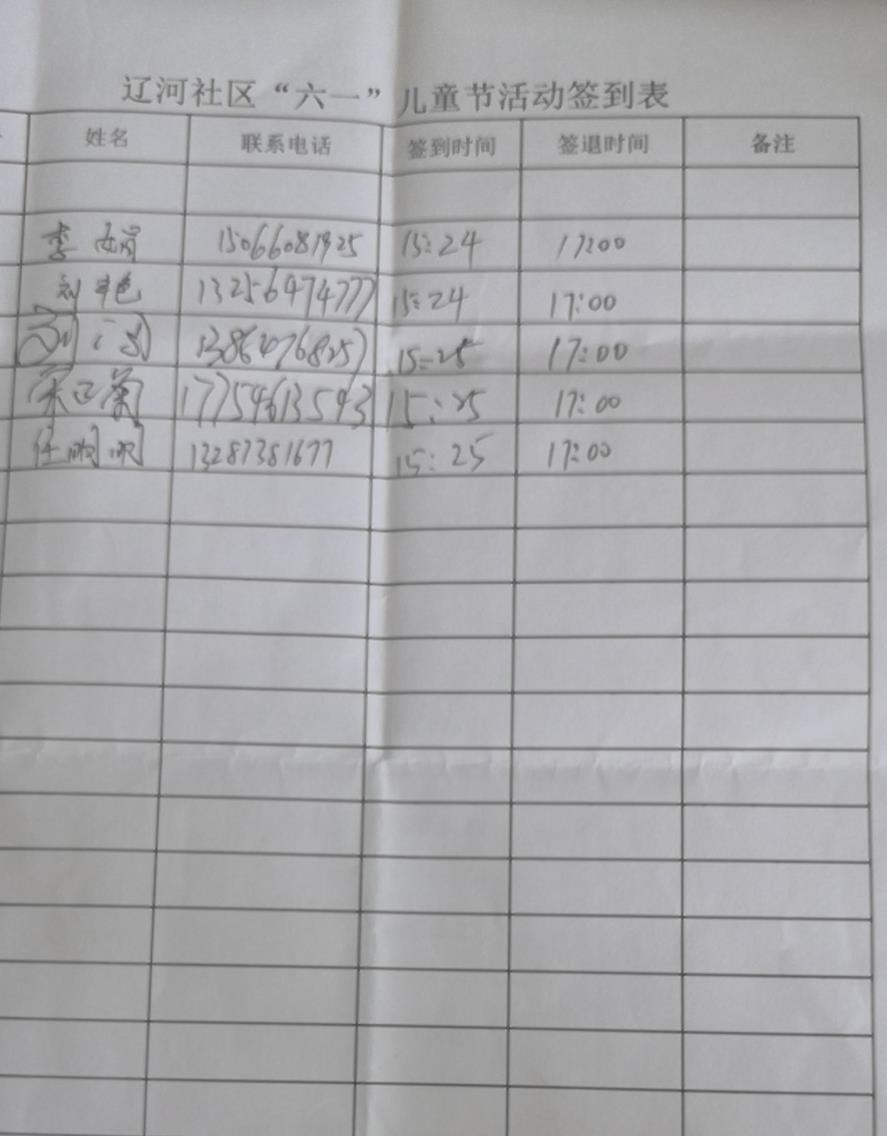 辽河社区“六一”儿童节活动签到表
姓名 联系电话 签到时间 签退时间 备注
李娟 15:24 17:00
刘艳 13256474777 15:24 17:00
刘 15:25 17:00
17754613543 15:25 17:00
任明明 13287381677 15:25 17:00